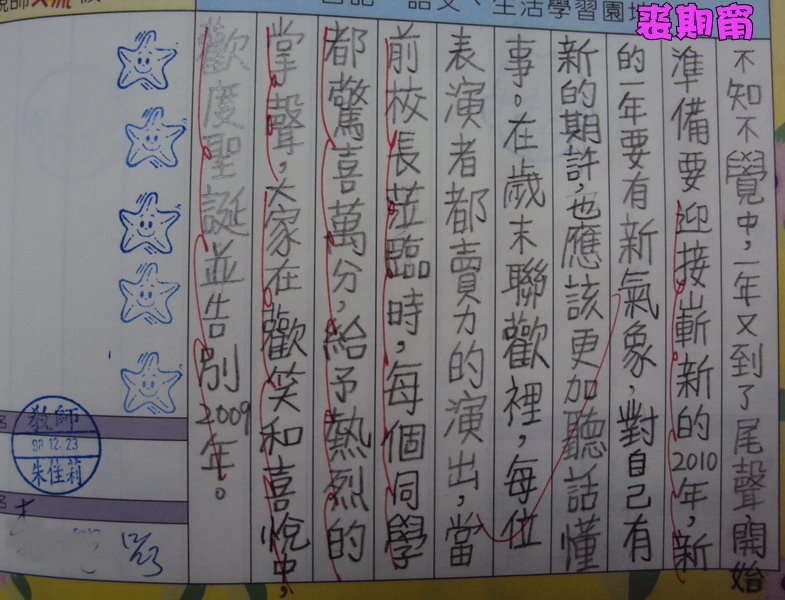 裘期甯
語文、生活學習園地
不知不覺中，一年又到了尾聲，開始
準備要迎接嶄新的2010年，新
的一年要有新氣象，對自己有
新的期許，也應該更加聽話懂
事。在歲末聯歡裡，每位
表演者都賣力的演出，當
前校長蒞臨時，每個同學
都驚喜萬分，給予熱烈的
掌聲，大家在歡笑和喜悅中，
歡度聖誕並告別2009年。
教師
98.12.23
朱佳莉